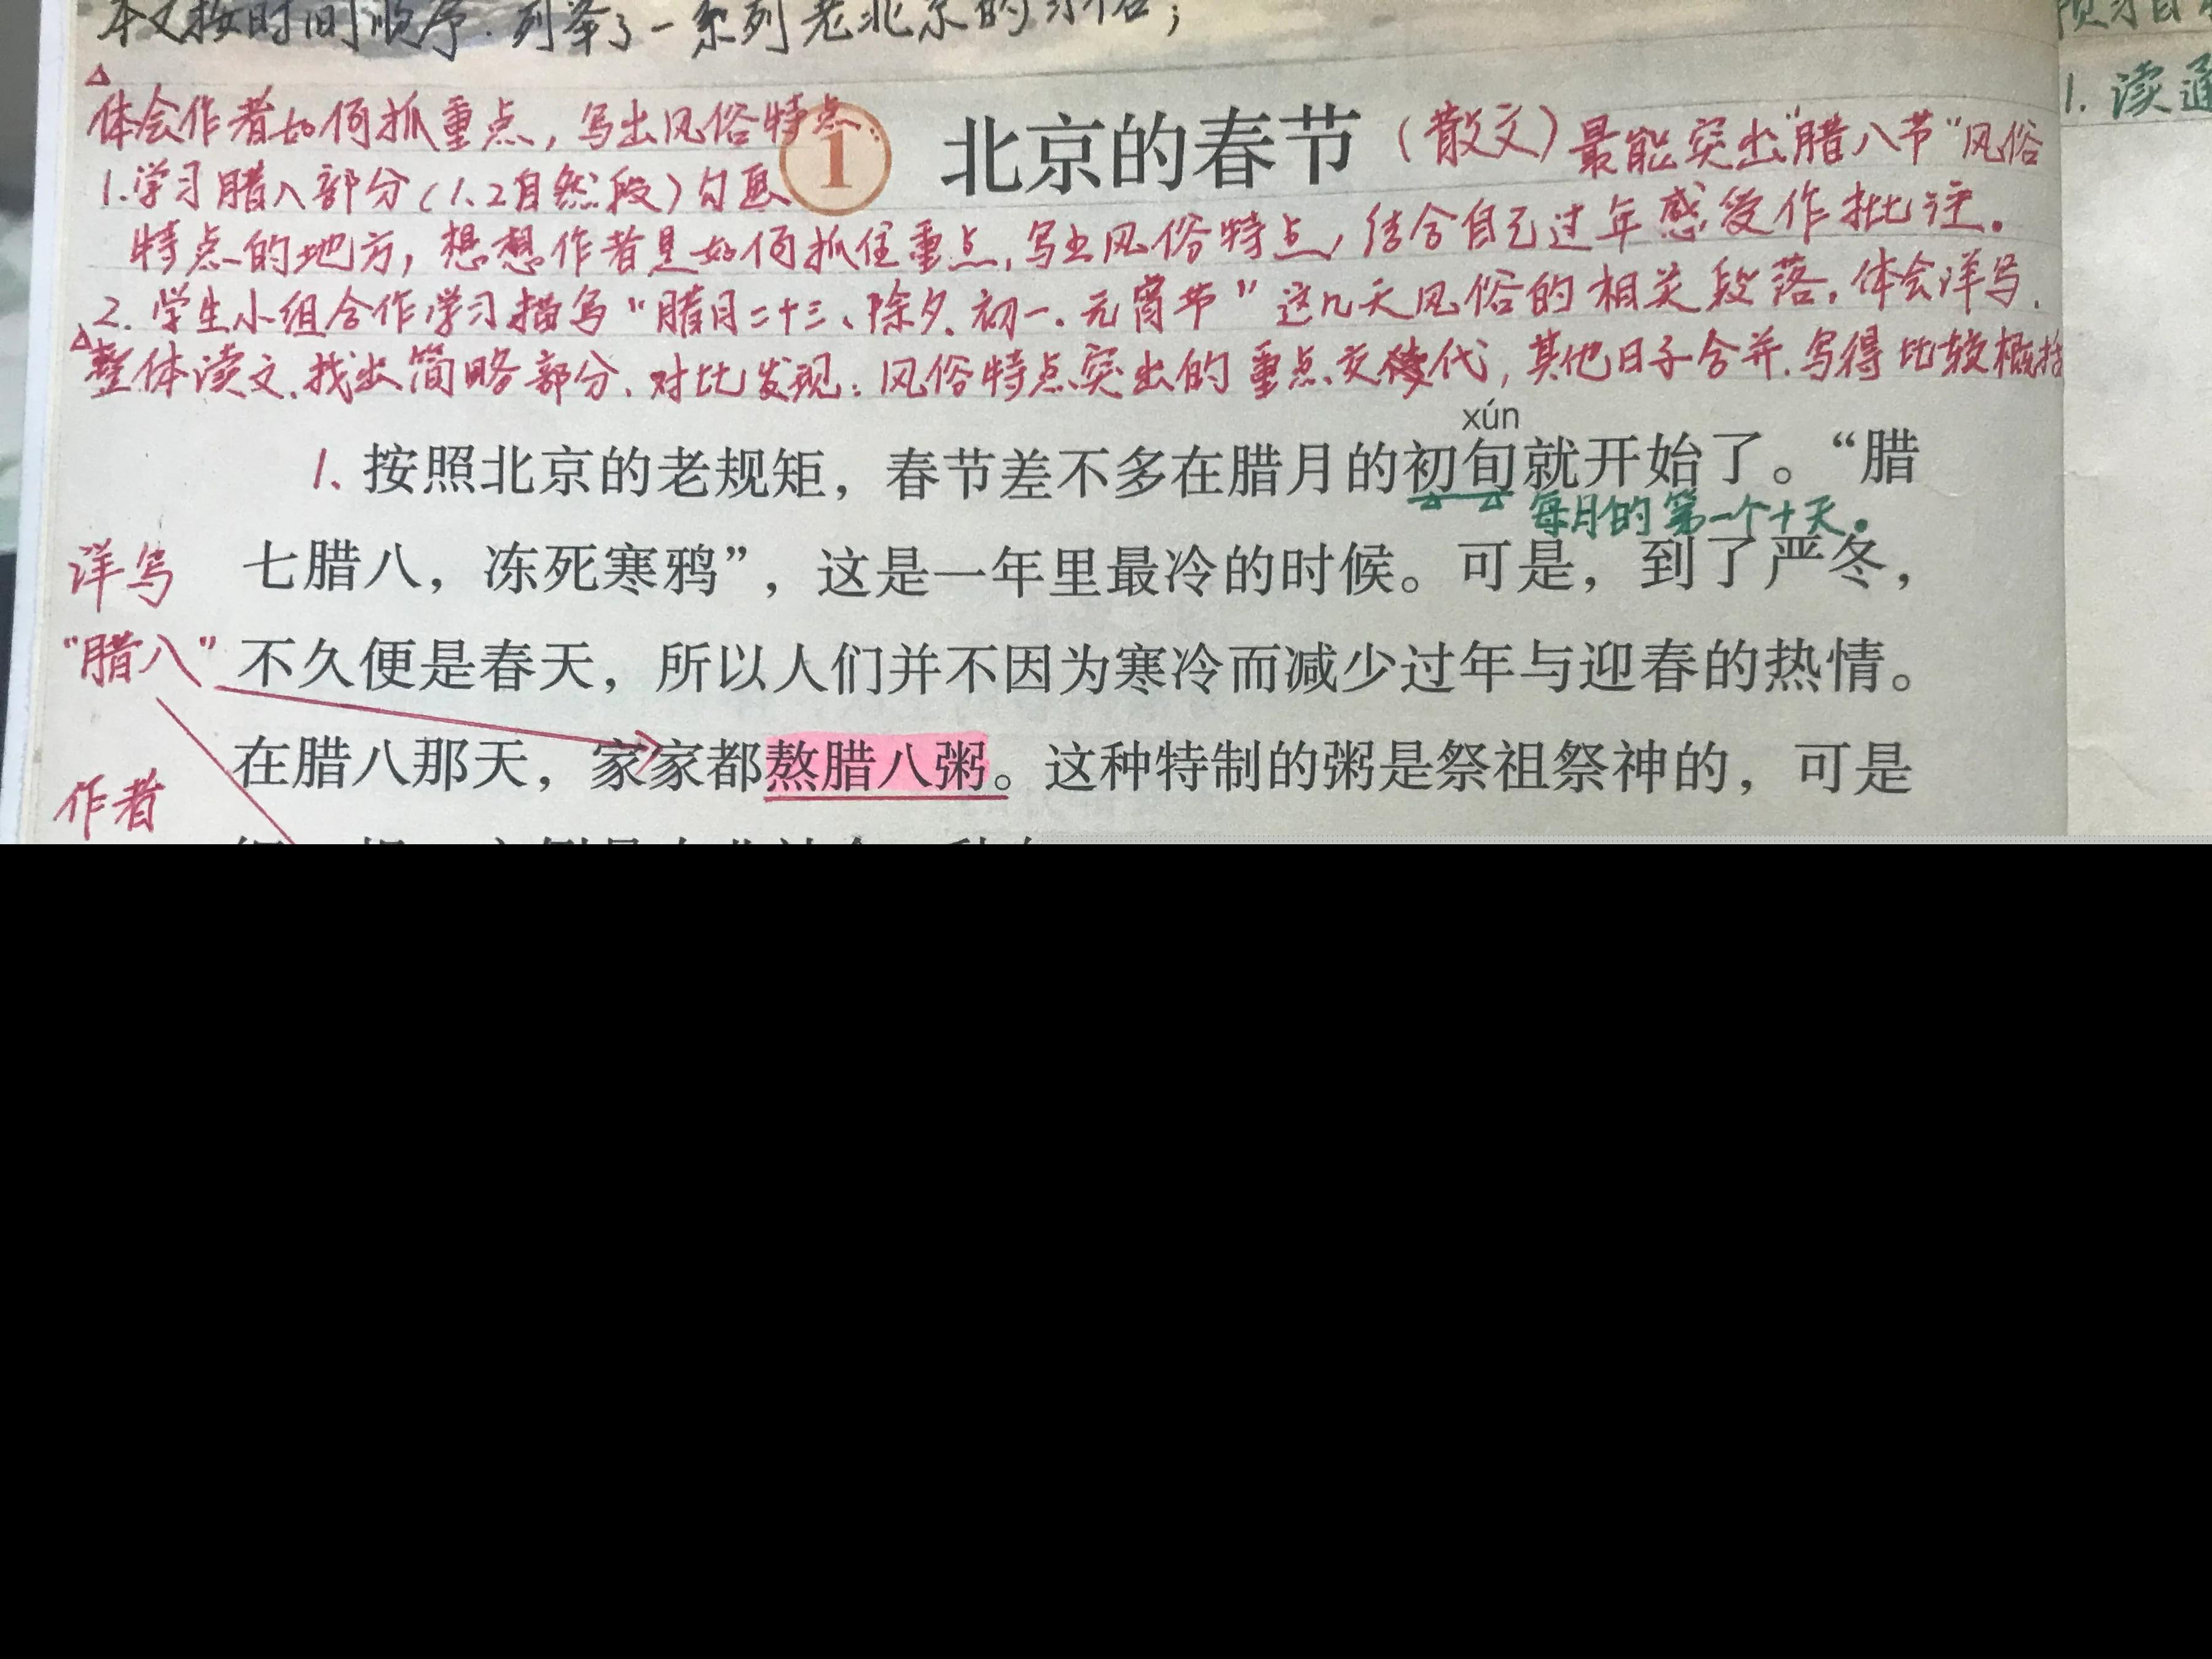 本文按时间顺序.列举了一系列老北京的习俗;
1. 读通
体会作者如何抓重点,写出风俗特点.
① 北京的春节(散文)最能突出"腊八节"风俗
1.学习腊八部分(1.2自然段)勾画
特点的地方,想想作者是如何抓住重点,写出风俗特点,结合自己过年感受作批注。
2.学生小组合作学习描写"腊月二十三、除夕.初一.元宵节"这几天风俗的相关段落.体会详写.
整体读文.找出简略部分.对比发现:风俗特点突出的重点交代,其他日子合并.写得比较概括
xún
1. 按照北京的老规矩,春节差不多在腊月的初旬就开始了。“腊
每月的第一个十天。
详写 七腊八,冻死寒鸦”,这是一年里最冷的时候。可是,到了严冬,
"腊八" 不久便是春天,所以人们并不因为寒冷而减少过年与迎春的热情。
在腊八那天,家家都熬腊八粥。这种特制的粥是祭祖祭神的,可是
作者